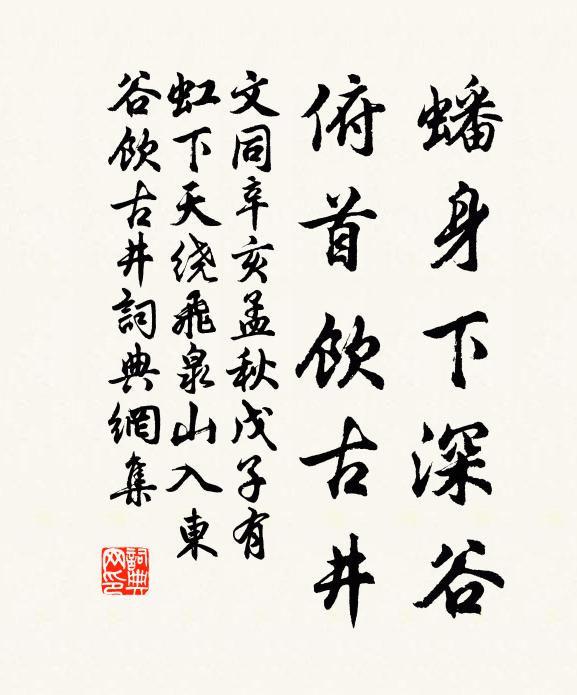 蟠身下深谷
俯首饮古井
文同辛亥孟秋戊子有
虹下天绕飛泉山入東
谷饮古井詞典網集
詞典网印